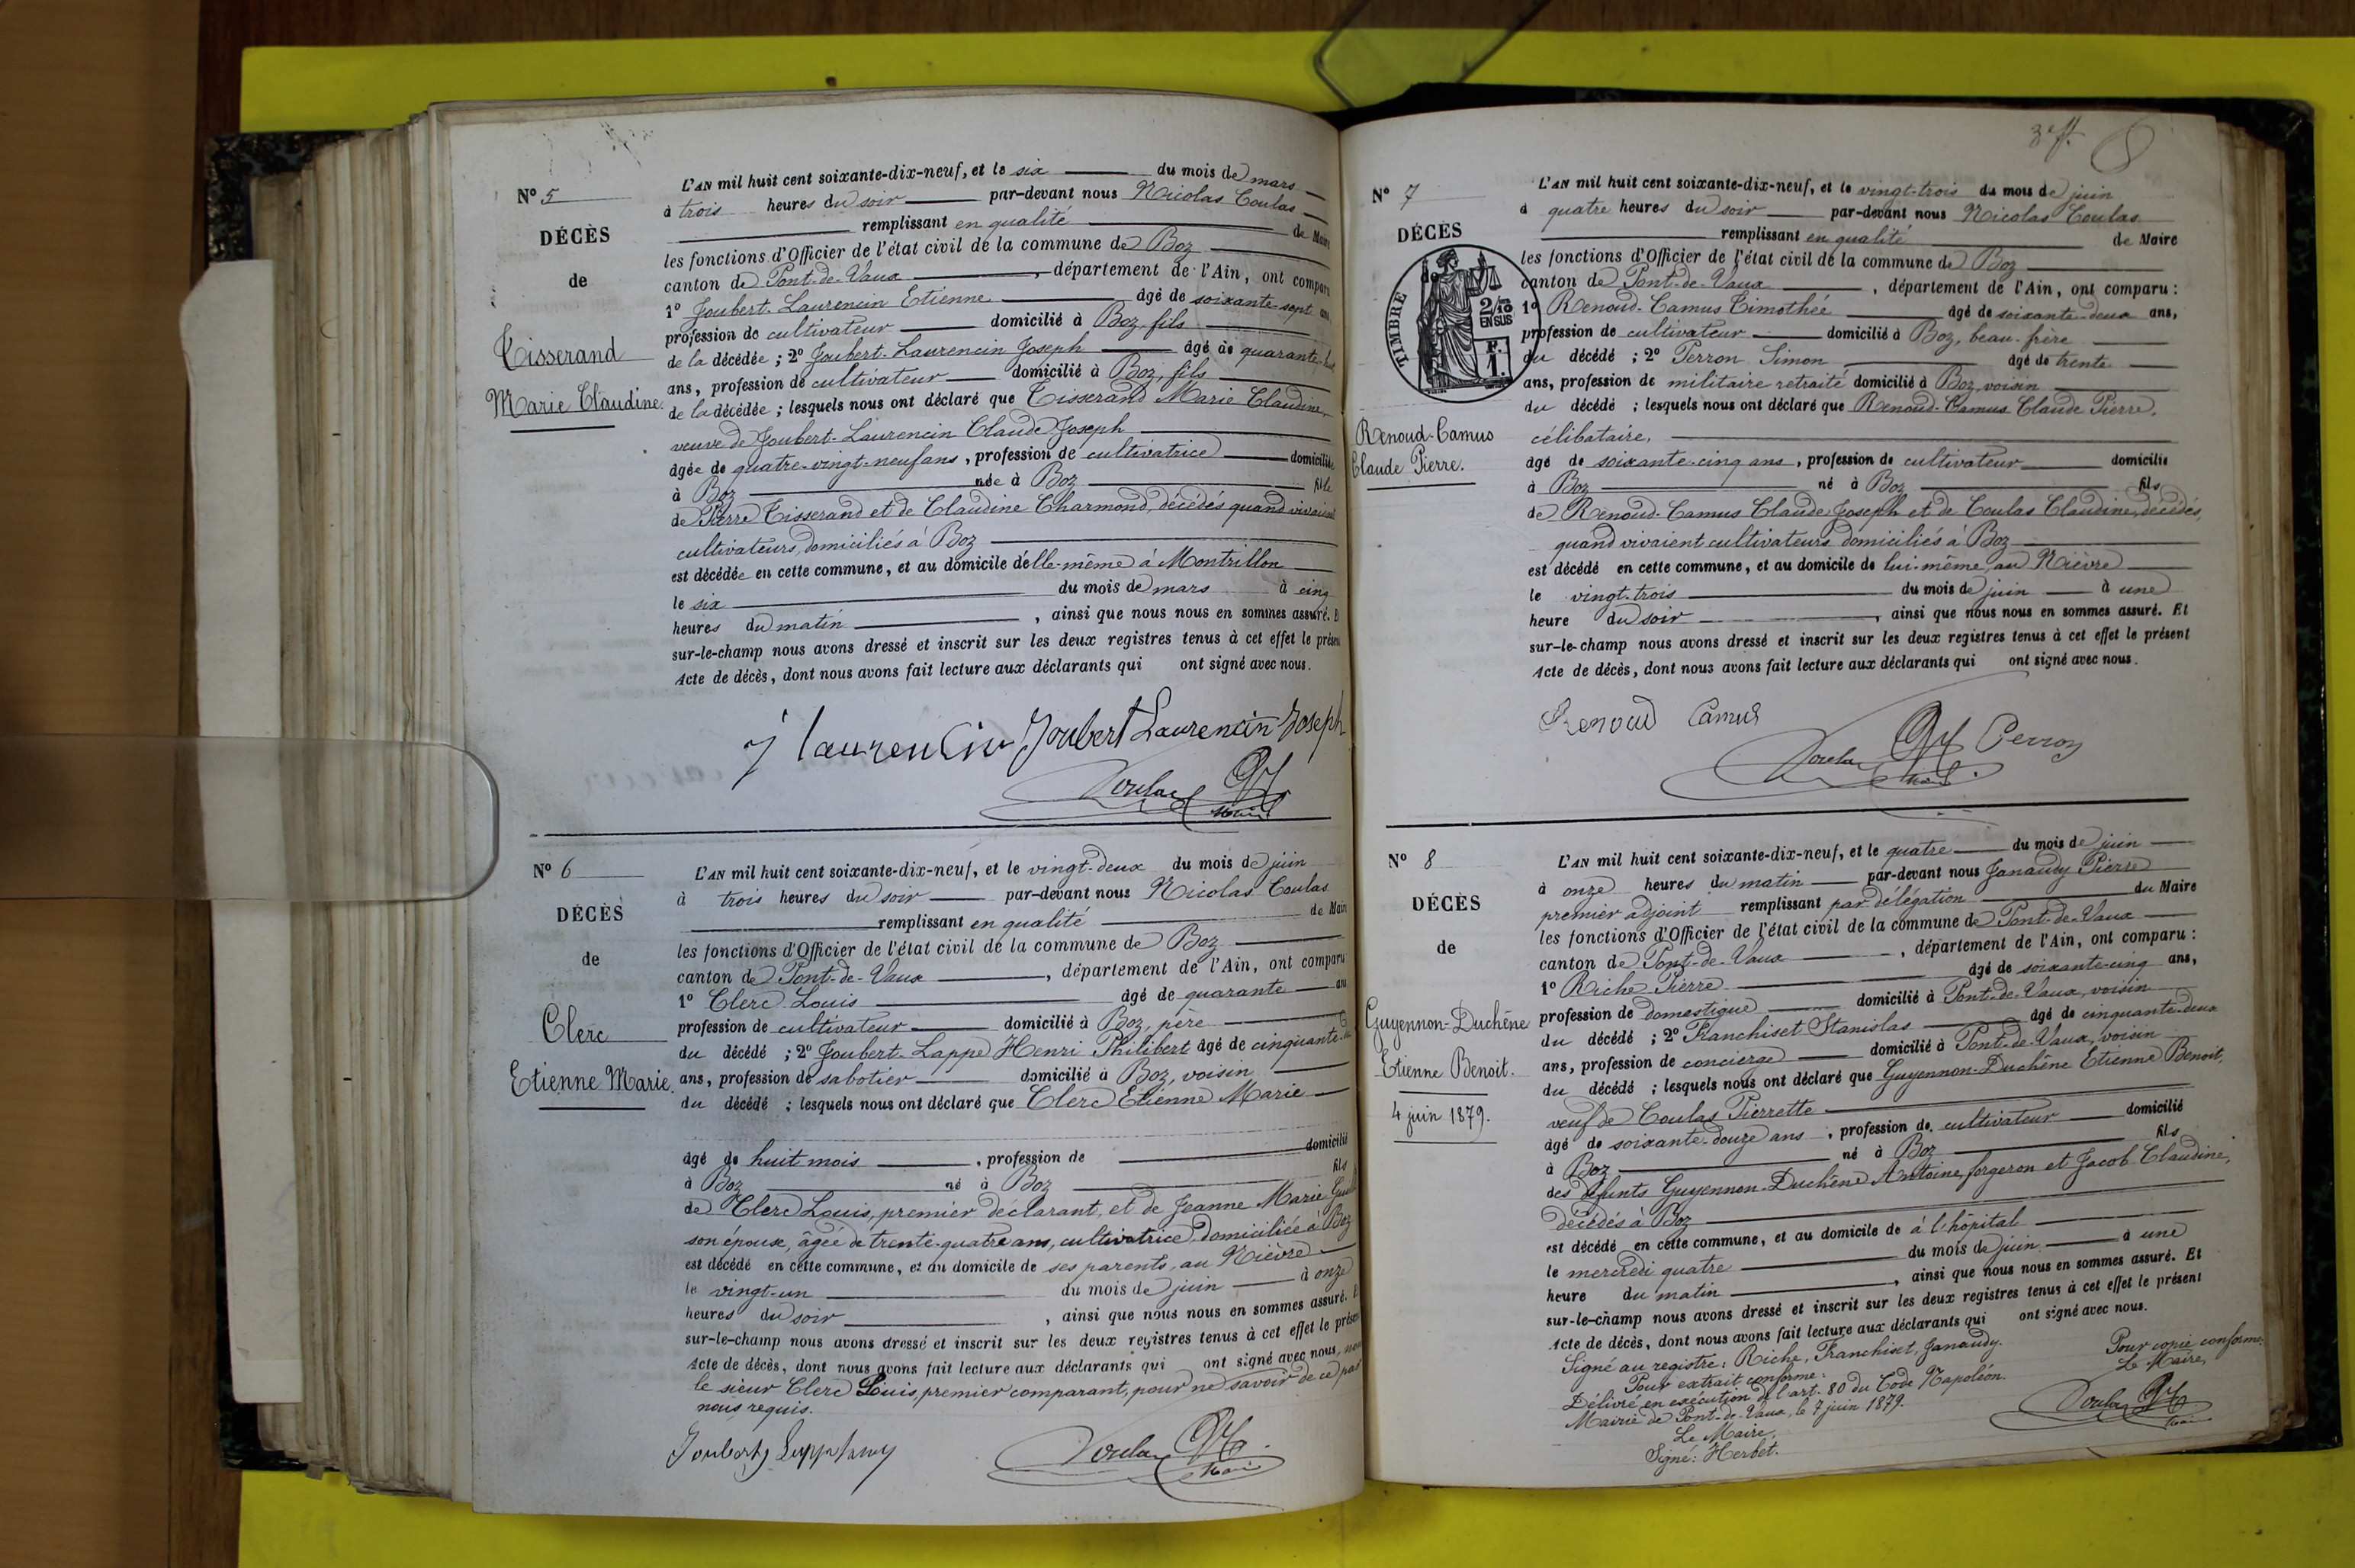 N° 5
DÉCÈS
de
Tisserand
Marie Claudine.
L'AN mil huit cent soixante-dix-neuf, et le six du mois de mars
à trois heures du soir par-devant nous Nicolas Coulas
remplissant en qualité de Maire
les fonctions d'Officier de l'état civil de la commune de Boz
canton de Pont-de-Vaux, département de l'Ain, ont comparu
1° Joubert-Laurencin Etienne âgé de soixante-sept ans
profession de cultivateur domicilié à Boz, fils
de la décédée ; 2° Joubert-Laurencin Joseph âgé de quarante-
ans, profession de cultivateur domicilié à Boz, fils
de la décédée ; lesquels nous ont déclaré que Tisserand Marie Claudine,
veuve de Joubert-Laurencin Claude Joseph
âgée de quatre-vingt-neuf ans, profession de cultivatrice domiciliée
à Boz née à Boz fille
de Pierre Tisserand et de Claudine Charmond, décédés quand vivaient
cultivateurs, domiciliés à Boz
est décédée en cette commune, et au domicile d'elle-même à Montrillon
le six du mois de mars à cinq
heures du matin, ainsi que nous nous en sommes assuré. E
sur-le-champ nous avons dressé et inscrit sur les deux registres tenus à cet effet le présen
Acte de décès, dont nous avons fait lecture aux déclarants qui ont signé avec nous.
J laurencin Joubert Laurencin Joseph
Coulas
Maire
N° 6
DÉCÈS
de
Clerc
Etienne Marie.
L'AN mil huit cent soixante-dix-neuf, et le vingt-deux du mois de juin
à trois heures du soir par-devant nous Nicolas Coulas
remplissant en qualité de Maire
les fonctions d'Officier de l'état civil de la commune de Boz
canton de Pont-de-Vaux, département de l'Ain, ont comparu
1° Clerc Louis âgé de quarante ans
profession de cultivateur domicilié à Boz, père
du décédé ; 2° Joubert-Lappe Henri Philibert âgé de cinquante-
ans, profession de sabotier domicilié à Boz, voisin
du décédé ; lesquels nous ont déclaré que Clerc Etienne Marie
âgé de huit mois, profession de domicilié
à Boz né à Boz fils
de Clerc Louis, premier déclarant, et de Jeanne Marie
son épouse, âgée de trente-quatre ans, cultivatrice, domiciliée à Boz
est décédé en cette commune, et au domicile de ses parents, au Nièvre
le vingt-un du mois de juin à onze
heures du soir, ainsi que nous nous en sommes assuré. E
sur-le-champ nous avons dressé et inscrit sur les deux registres tenus à cet effet le présen
Acte de décès, dont nous avons fait lecture aux déclarants qui ont signé avec nous, non
le sieur Clerc Louis, premier comparant, pour ne savoir de ce par
nous requis.
Joubert Lappe
Coulas
Maire
3e ff. 8
N° 7
DÉCÈS
de
TIMBRE
2/10
EN SUS
F.
1.
Renoud-Camus
Claude Pierre.
L'AN mil huit cent soixante-dix-neuf, et le vingt-trois du mois de juin
à quatre heures du soir par-devant nous Nicolas Coulas
remplissant en qualité de Maire
les fonctions d'Officier de l'état civil de la commune de Boz
canton de Pont-de-Vaux, département de l'Ain, ont comparu :
1° Renoud-Camus Timothée âgé de soixante-deux ans,
profession de cultivateur domicilié à Boz, beau-frère
du décédé ; 2° Perron Simon âgé de trente
ans, profession de militaire retraité domicilié à Boz, voisin
du décédé ; lesquels nous ont déclaré que Renoud-Camus Claude Pierre,
célibataire,
âgé de soixante-cinq ans, profession de cultivateur domicilié
à Boz né à Boz fils
de Renoud-Camus Claude Joseph et de Coulas Claudine, décédés,
quand vivaient cultivateurs domiciliés à Boz
est décédé en cette commune, et au domicile de lui-même, au Nièvre
le vingt-trois du mois de juin à une
heure du soir, ainsi que nous nous en sommes assuré. Et
sur-le-champ nous avons dressé et inscrit sur les deux registres tenus à cet effet le présent
Acte de décès, dont nous avons fait lecture aux déclarants qui ont signé avec nous.
Renoud Camus
Coulas Perron
Maire
N° 8
DÉCÈS
de
Guyennon-Duchêne
Etienne Benoit.
4 juin 1879.
L'AN mil huit cent soixante-dix-neuf, et le quatre du mois de juin
à onze heures du matin par-devant nous Janaudy Pierre
premier adjoint remplissant par délégation du Maire
les fonctions d'Officier de l'état civil de la commune de Pont-de-Vaux
canton de Pont-de-Vaux, département de l'Ain, ont comparu :
1° Riche Pierre âgé de soixante-cinq ans,
profession de domestique domicilié à Pont-de-Vaux, voisin
du décédé ; 2° Franchiset Stanislas âgé de cinquante-deux
ans, profession de concierge domicilié à Pont-de-Vaux, voisin
du décédé ; lesquels nous ont déclaré que Guyennon-Duchêne Etienne Benoit,
veuf de Coulas Pierrette
âgé de soixante-douze ans, profession de cultivateur domicilié
à Boz né à Boz fils
des défunts Guyennon-Duchêne Antoine, forgeron et Jacob Claudine,
décédés à Boz
est décédé en cette commune, et au domicile de à l'hôpital
le mercredi quatre du mois de juin à une
heure du matin, ainsi que nous nous en sommes assuré. Et
sur-le-champ nous avons dressé et inscrit sur les deux registres tenus à cet effet le présent
Acte de décès, dont nous avons fait lecture aux déclarants qui ont signé avec nous.
Signé au registre : Riche, Franchiset, Janaudy.
Pour extrait conforme :
Délivré en exécution de l'art. 80 du Code Napoléon.
Mairie de Pont-de-Vaux, le 7 juin 1879.
Le Maire,
Signé : Herbet.
Pour copie conforme :
Le Maire,
Coulas
Maire